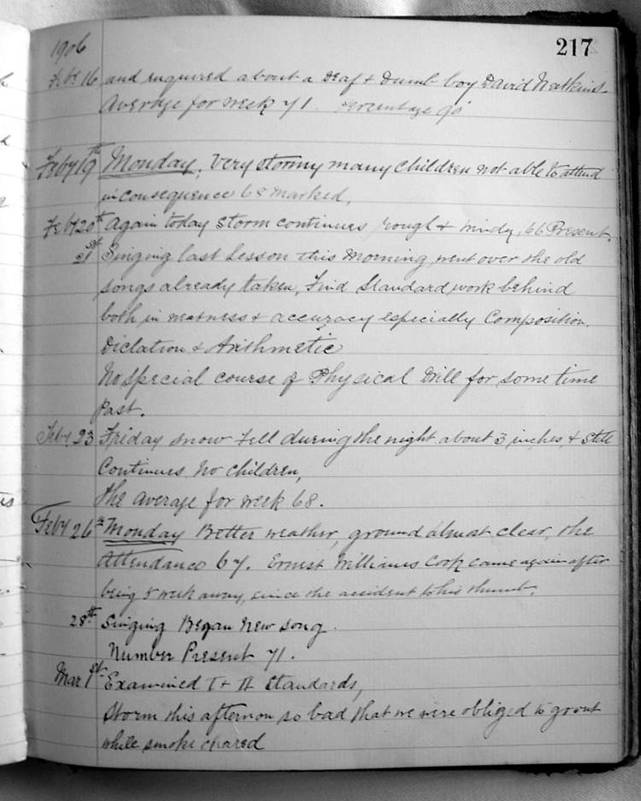 1906
217
Feby 16 and enquired about a Deaf & Dumb boy David Watkins
Average for week 71. Percentage 90
Feby 19th Monday. Very stormy many children not able to attend
in consequence 68 marked,
Feby 20th Again today storm continues rough & windy, 66 Present.
21st Singing last lesson this morning, went over the old
songs already taken, Find Standard work behind
both in neatness & accuracy especially Composition
Dictation & Arithmetic
No special course of Physical Drill for some time
past.
Feby 23 Friday snow fell during the night about 3 inches & still
Continues no children,
The average for week 68.
Feby 26th Monday Better weather, ground almost clear, the
Attendance 67. Ernest Williams came again after
being week away, since the accident to his thumb.
28th Singing Began new song.
Number Present 71.
Mar 1st Examined I & II Standards,
Storm this afternoon so bad that we were obliged to go out
while smoke cleared